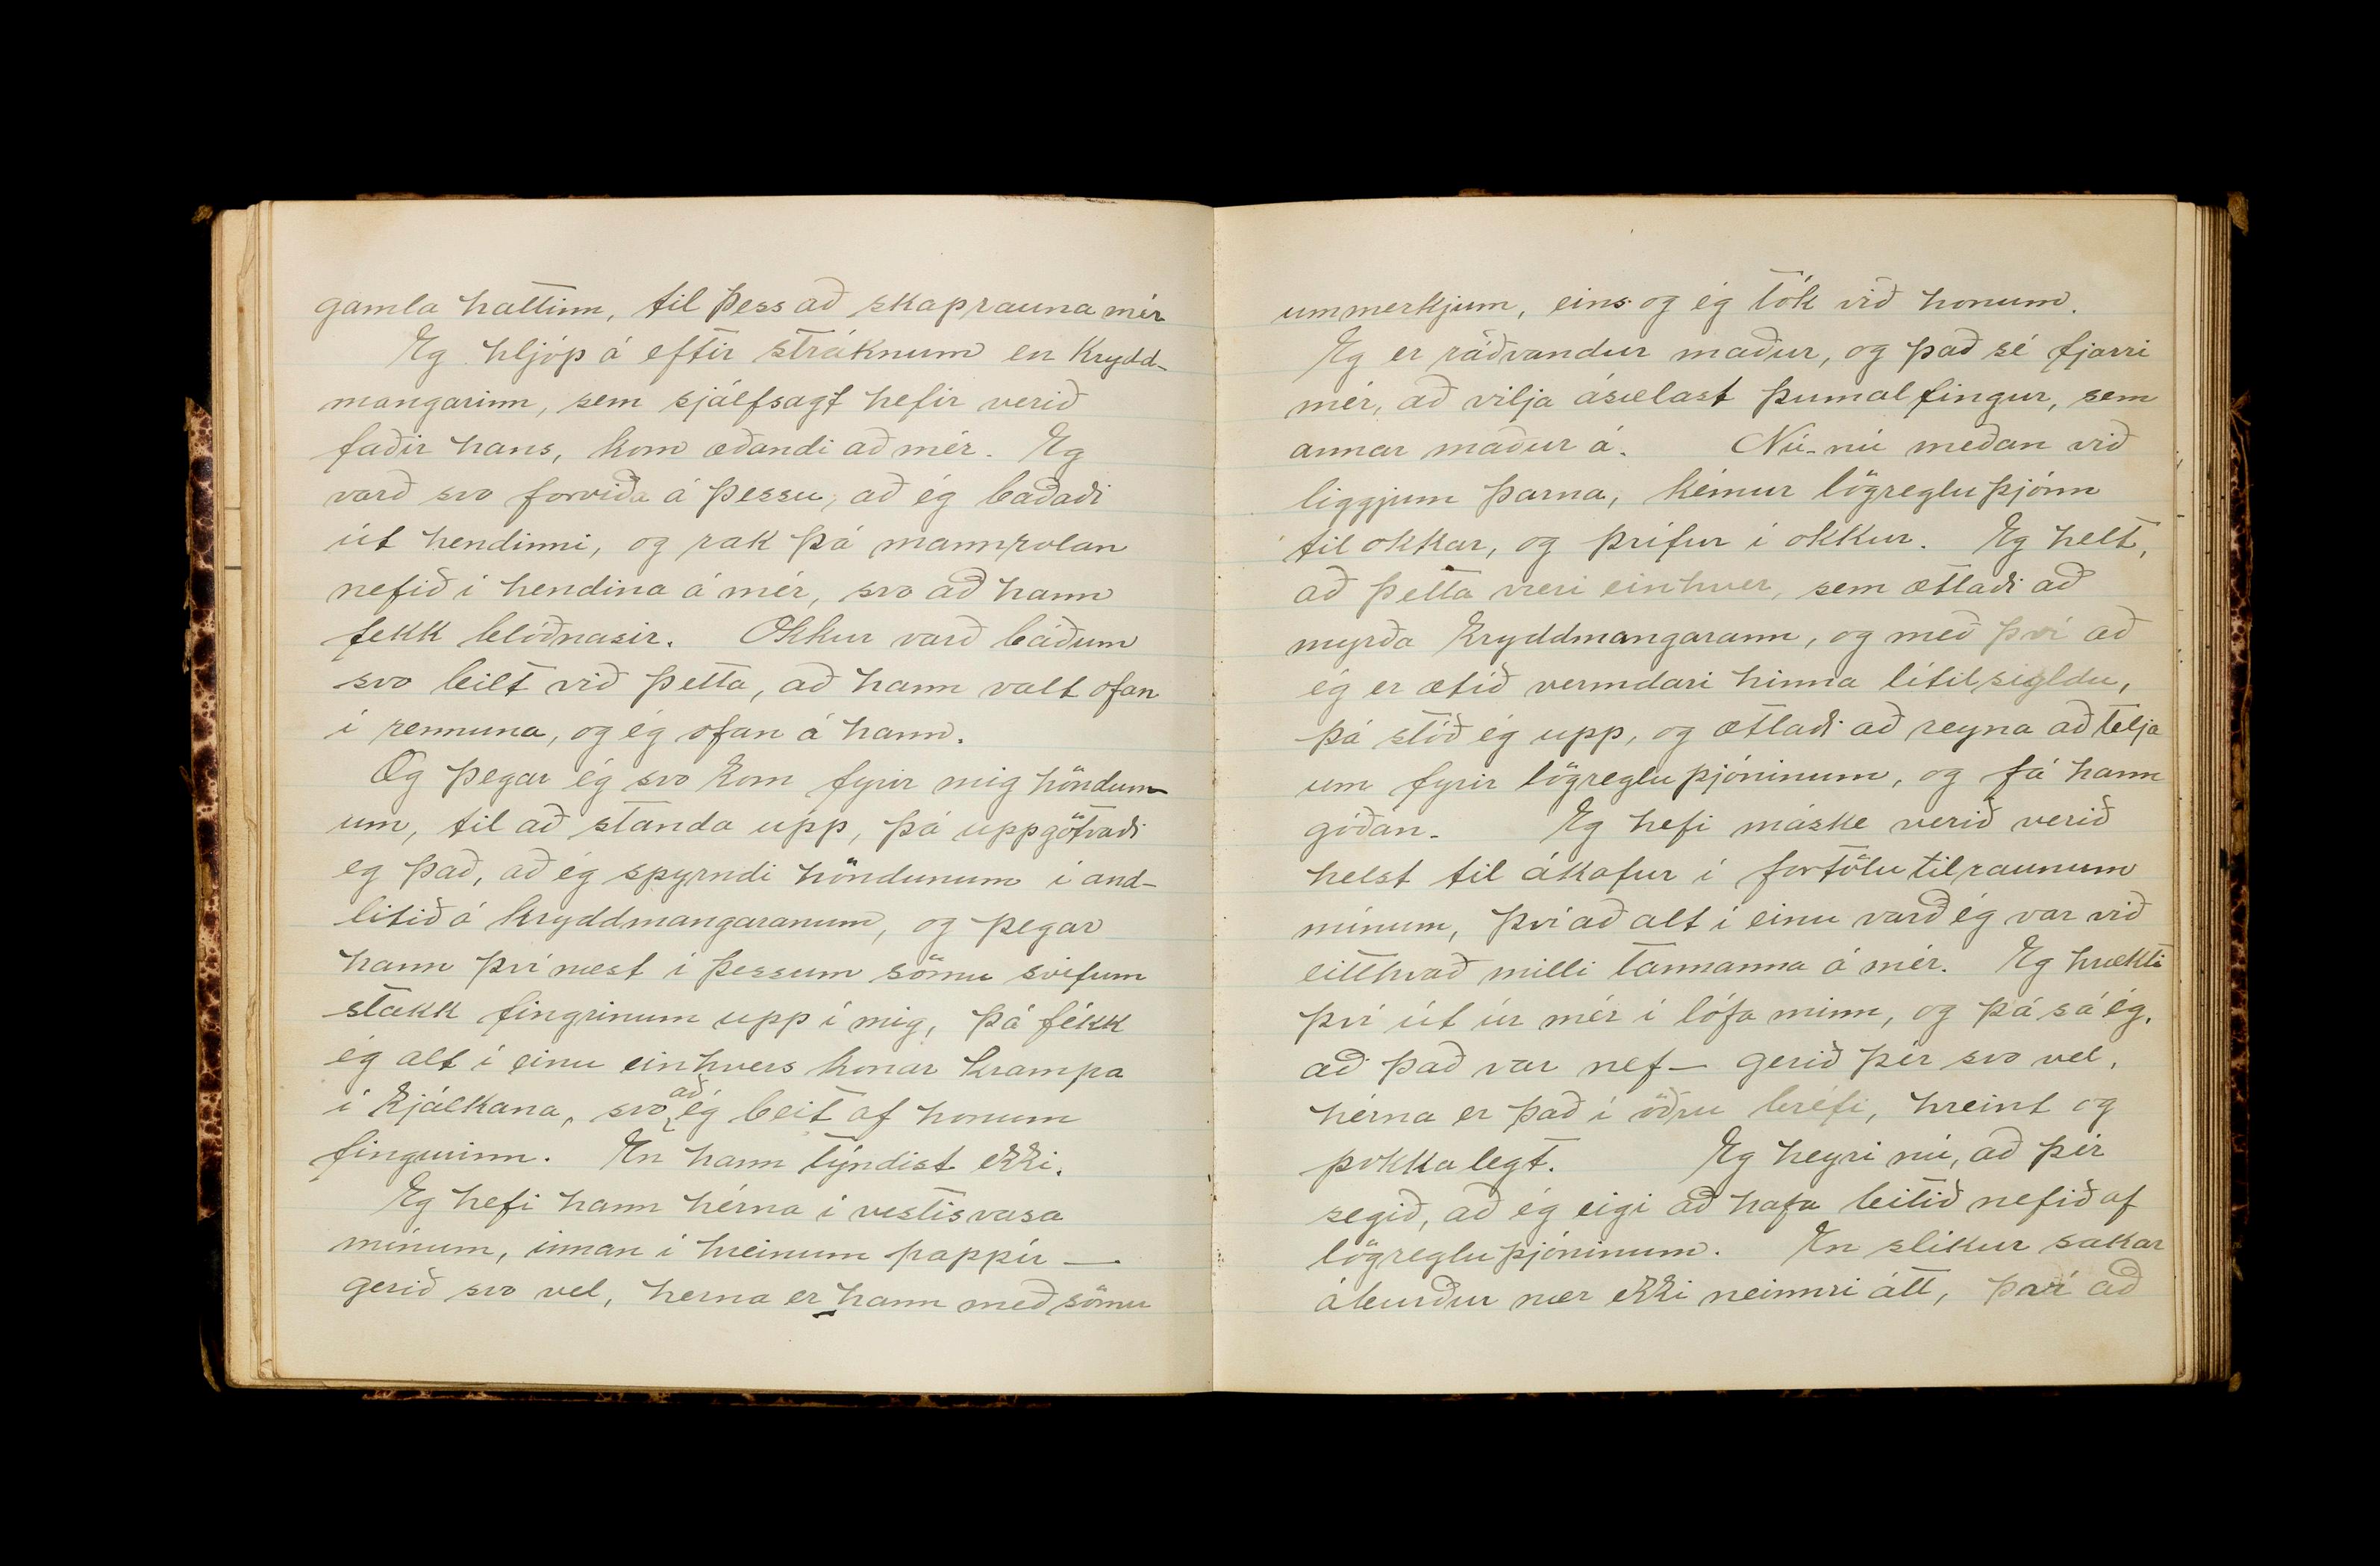 gamla hattinn, til þess að skaprauna mér
Eg hljóp á eftir stráknum en Krydd-
mangarinn, sem sjálfsagt hefir verið
faðir hans, kom æðandi að mér. Eg
varð svo forviða á þessu, að ég baðaði
út hendinni, og rak þá mannrolan
nefið í hendina á mér, svo að hann
fekk blóðnasir. Okkur varð báðum
svo bilt við þetta, að hann valt ofan
í rennuna, og ég ofan á hann.
Og þegar ég svo kom fyrir mig höndun-
um, til að standa upp, þá uppgötvaði
eg það, að ég spyrndi höndunum í and-
litið á kryddmangaranum, og þegar
hann því næst í þessum sömu svifum
stakk fingrinum upp í mig, þá fékk
ég alt í einu einhvers konar krampa
í kjálkana, svo að ég beit af honum
fingurinn. En hann týndist ekki.
Eg hefi hann hérna í vestisvasa
mínum, innan í hreinum pappír —
gerið svo vel, herna er hann með sömu
ummerkjum, eins og ég tók við honum.
Eg er ráðvandur maður, og það sé fjarri
mér, að vilja ásælast þumalfingur, sem
annar maður á. Nú-nú meðan við
liggjum þarna, kémur lögregluþjónn
til okkar, og þrífur í okkur. Eg helt,
að þetta væri einhver, sem ætlaði að
myrða kryddmangarann, og með því að
ég er ætíð verndari hinna lítilsigldu,
þá stóð ég upp, og ætlaði að reyna að telja
um fyrir lögregluþjóninum, og fá hann
góðan. Eg hefi máske verið verið
helst til ákafur í fortölutilraunum
mínum, því að alt í einu varð ég var við
eitthvað milli tannanna á mér. Eg hrækti
því út úr mér í lófa minn, og þá sá ég,
að það var nef — gerið þér svo vel,
hérna er það í öðru bréfi, hreint og
þokkalegt. Eg heyri nú, að þér
segið, að ég eigi að hafa bitið nefið af
lögregluþjóninum. En slíkur sakar
áburður nær ekki neinni átt, því að